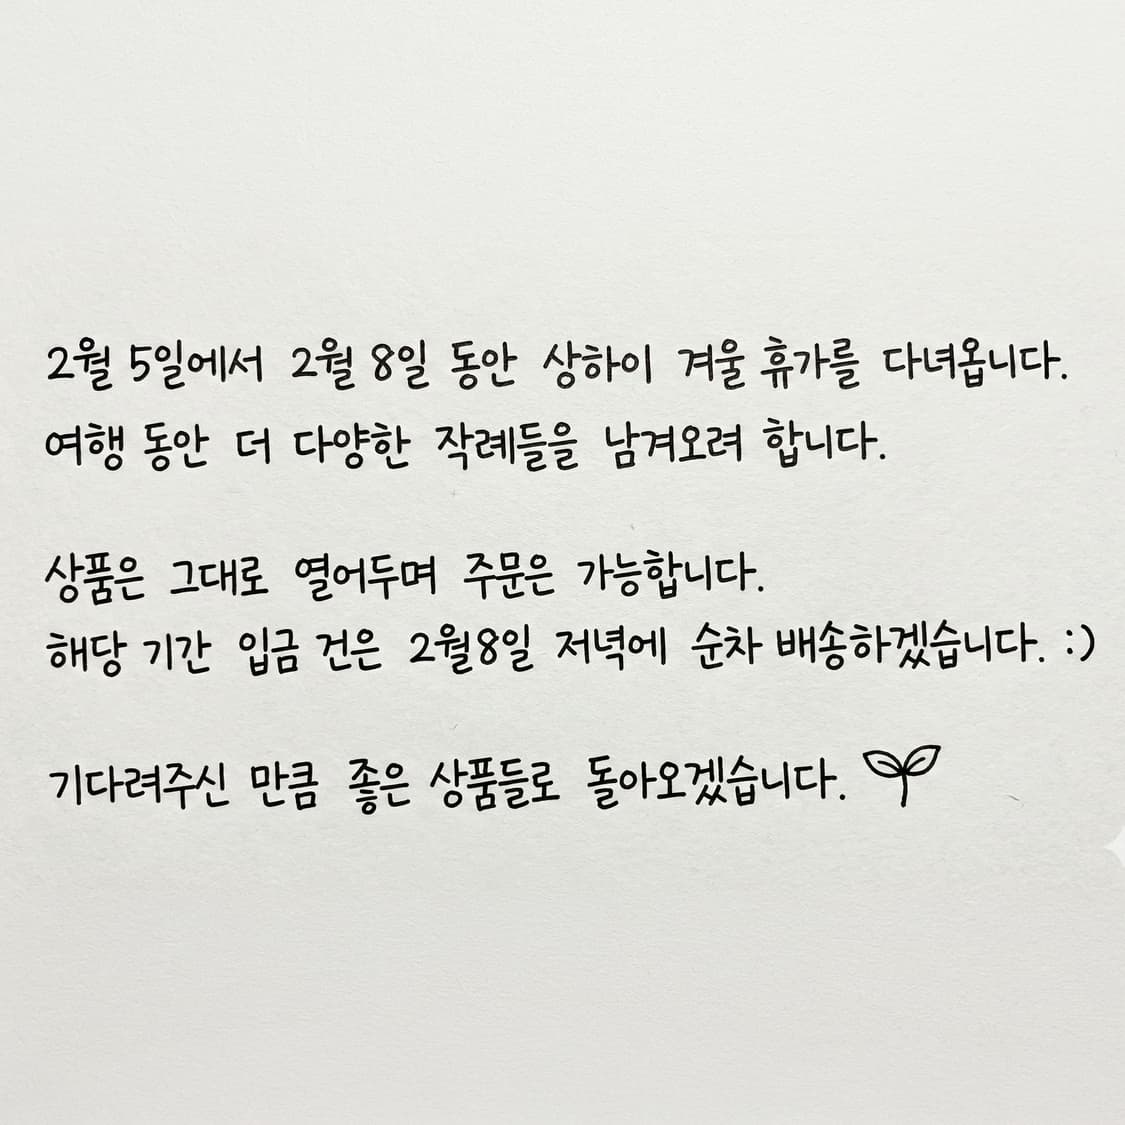 2월 5일에서 2월 8일 동안 상하이 겨울 휴가를 다녀옵니다.
여행 동안 더 다양한 작례들을 남겨오려 합니다.
상품은 그대로 열어두며 주문은 가능합니다.
해당 기간 입금 건은 2월8일 저녁에 순차 배송하겠습니다. :)
기다려주신 만큼 좋은 상품들로 돌아오겠습니다.